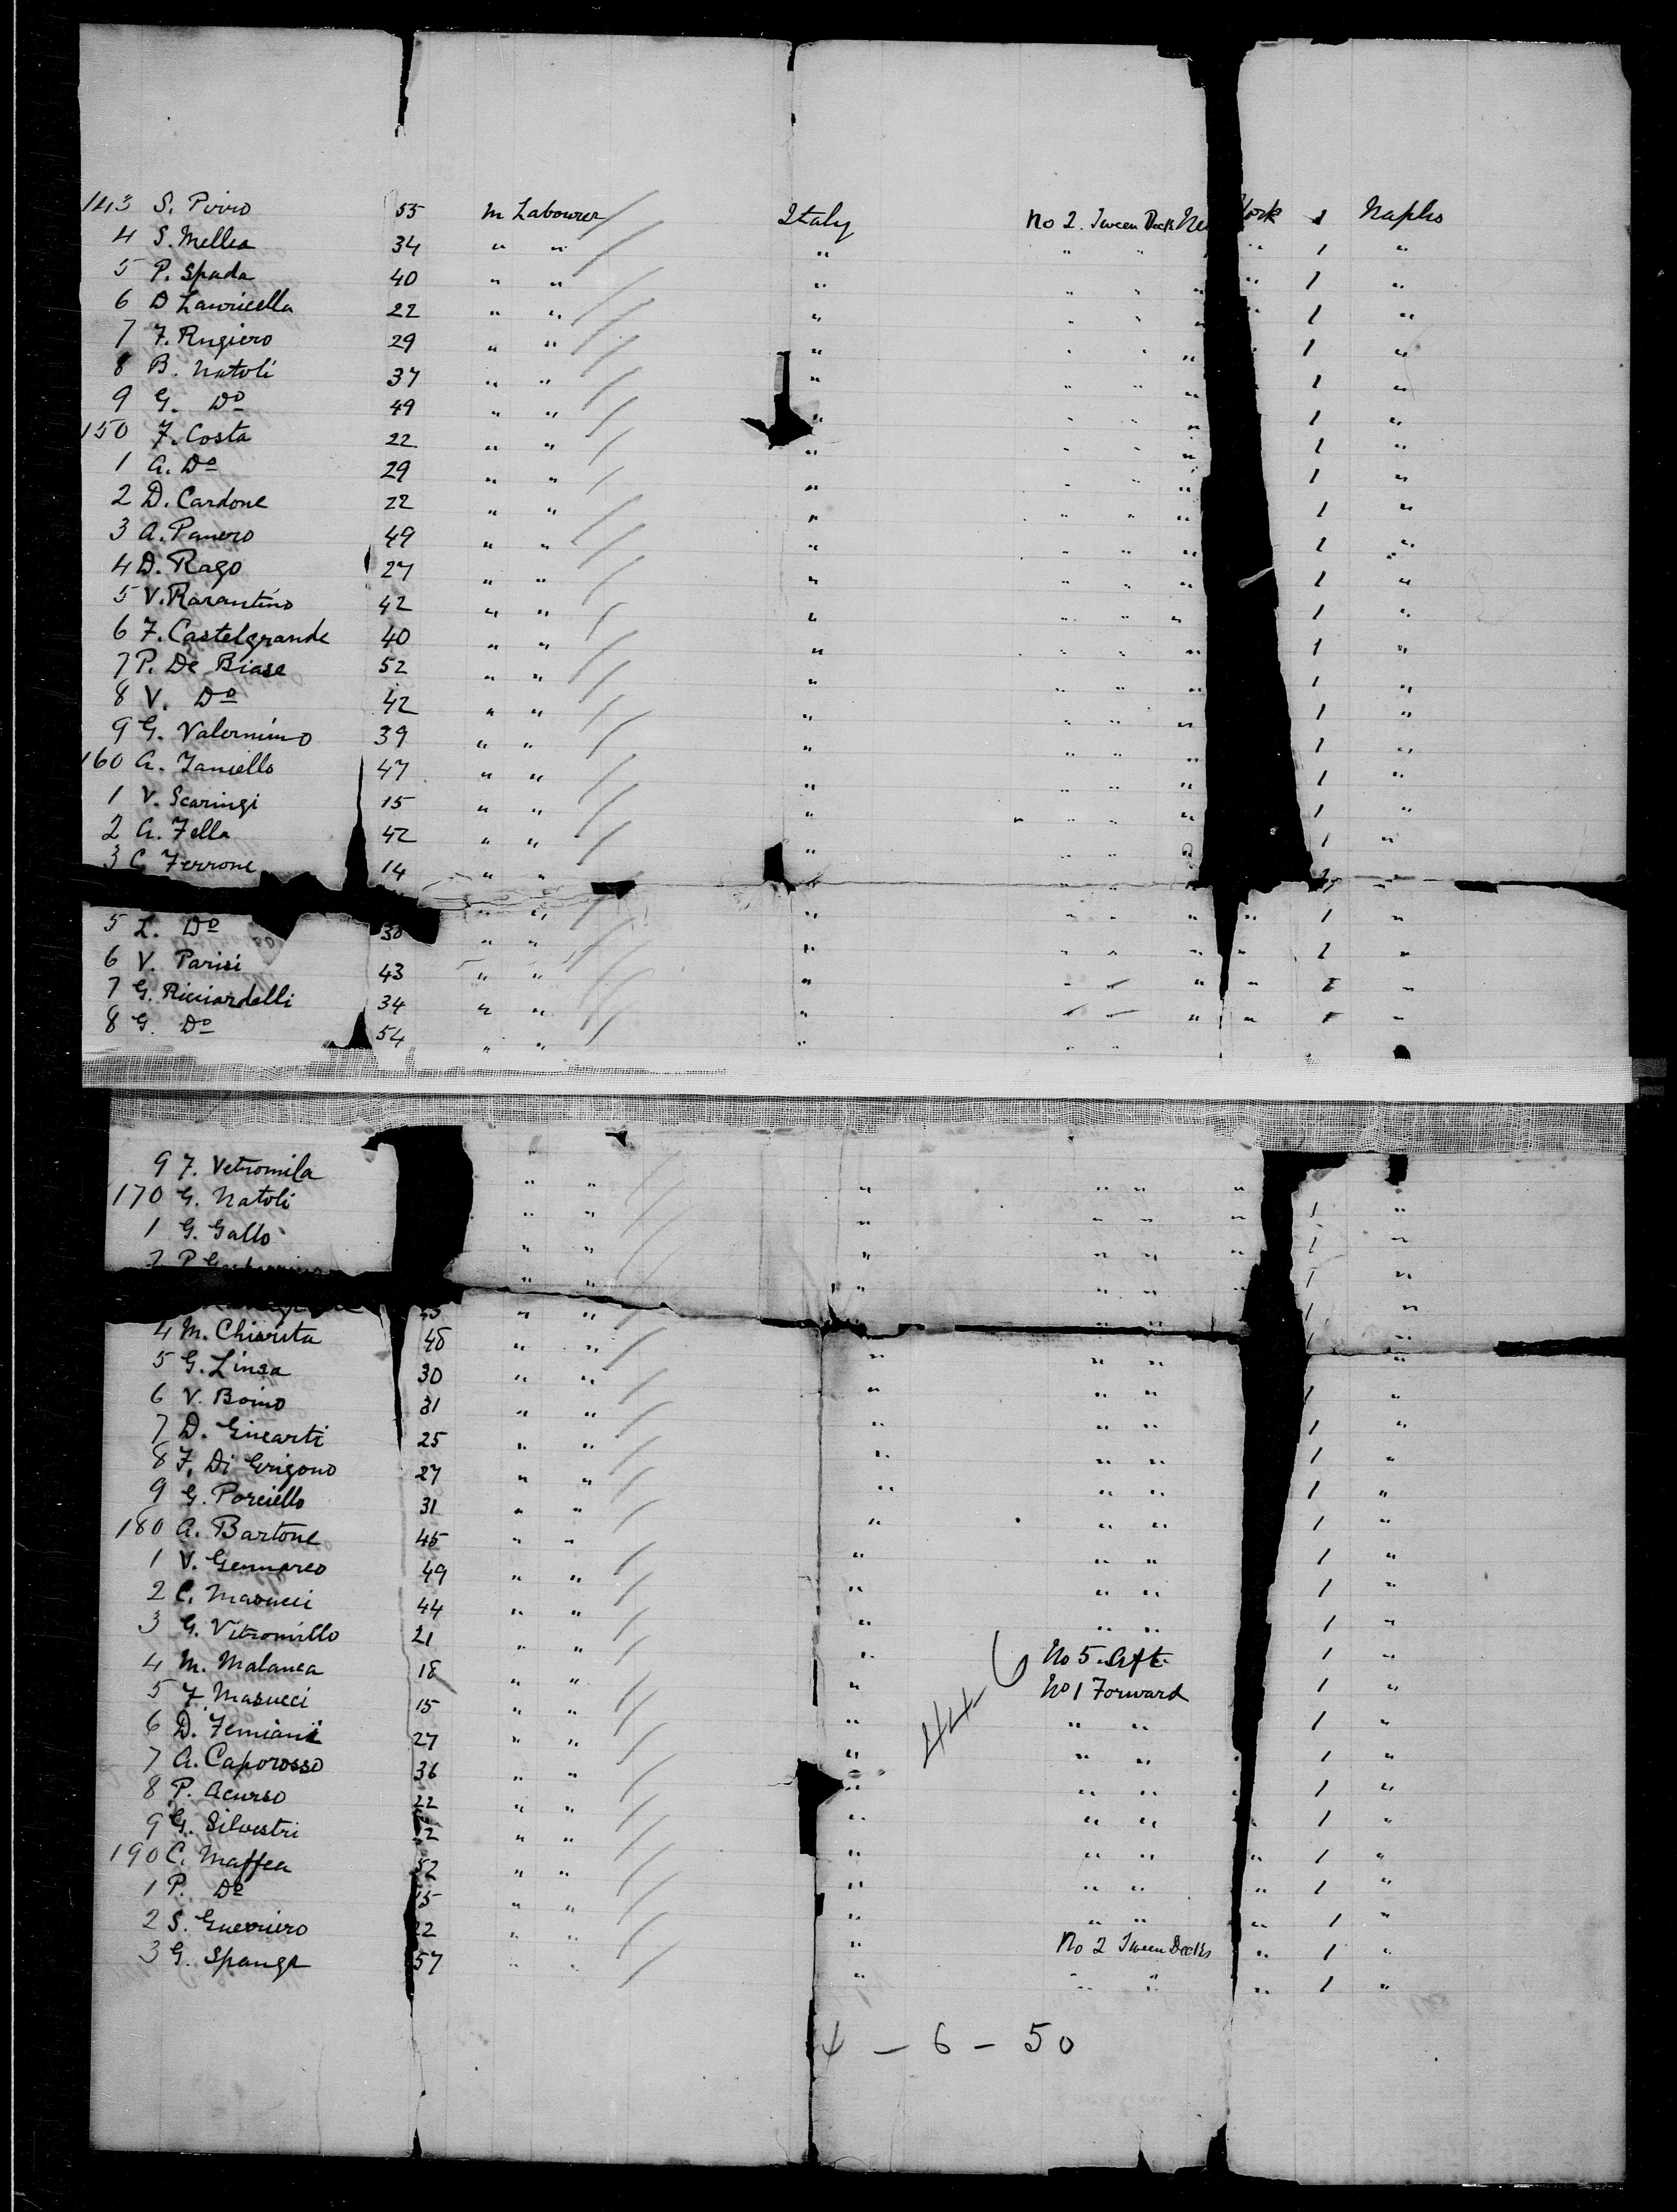 143 S. Pirro 55 m Labourer Italy No 2. Tween Deck Ne York 1 Naples
4 S. Mellea 34 " " " " " " 1 "
5 P. Spada 40 " " " " " " " 1 "
6 D Lauricella 22 " " " " " " 1 "
7 F. Rugiero 29 " " " " " " 1 "
8 B. Natoli 37 " " " " " " 1 "
9 G. Do 49 " " " " " " 1 "
150 F. Costa 22 " " " " " " 1 "
1 A. Do 29 " " " " " " 1 "
2 D. Cardone 22 " " " " " " 1 "
3 A. Panero 49 " " " " " " 1 "
4 D. Rago 27 " " " " " " 1 "
5 V. Rarantino 42 " " " " " " 1 "
6 F. Castelgrande 40 " " " " " " 1 "
7 P. De Biase 52 " " " " " " 1 "
8 V. Do 42 " " " " " " 1 "
9 G. Valernimo 39 " " " " " " 1 "
160 A. Ianiello 47 " " " " " " 1 "
1 V. Scaringi 15 " " " " " " 1 "
2 A. Fella 42 " " " " " 1 "
3 C Ferrone 14 " " " " " " "
" " " " " " " 1 "
5 L. Do 30 " " " " " " " 1 "
6 V. Parisi 43 " " " " " " " 1 "
7 G. Ricciardelli 34 " " " " " " " 1 "
8 G. Do 54 " " " " "
9 F. Vetromila " " " " " "
170 G. Natoli " " " " " " 1 "
1 G. Gallo " " " " " " 1 "
2 P. " " " " " 1 "
" " " " 1 "
4 M. Chiarita 48 " " " " " "
5 G. Linsa 30 " " " " " 1 "
6 V. Boino 31 " " " " " 1 "
7 D. Gincarti 25 " " " " " 1 "
8 F. Di Grigono 27 " " " " " 1 "
9 G. Porciello 31 " " " " " 1 "
180 A. Bartone 45 " " " " " 1 "
1 V. Gennareo 49 " " " " " 1 "
2 C. Masucci 44 " " " " " 1 "
3 G. Vitromillo 21 " " " No 5 Aft 1 "
4 M. Malanca 18 " " " No 1 Forward 1 "
5 F. Masucci 15 " " " " " 1 "
6 D. Femiani 27 " " " " " 1 "
7 A. Caporosso 36 " " " " " 1 "
8 P. Acurso 22 " " " " " 1 "
9 G. Silvestri 22 " " " " " " 1 "
190 C. Maffea 52 " " " " " " 1 "
1 P. Do 15 " " " " " " 1 "
2 S. Guerriero 22 " " " No 2 Tween Decks " 1 "
3 G. Spanga 57 " " " " " " 1 "
44 - 6
4 - 6 - 50